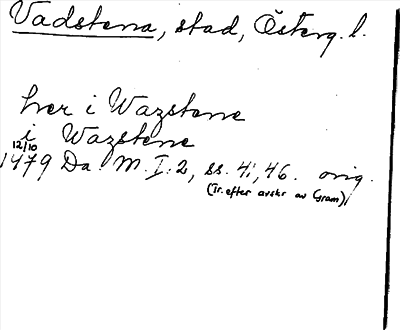 Vadstena, stad, Österg. l.
her i Wazstene
i Wazstene
12/10
1479 Da. M. I: 2, ss. 41, 46. orig.
(Tr. efter avskr av Gram);